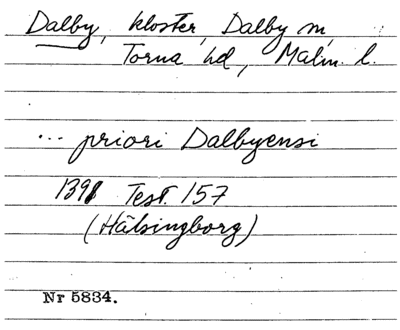 Dalby, kloster, Dalby sn,
Torna hd, Malm. l.
... priori Dalbyensi
1391 Test. 157
(Hälsingborg)
Nr 5834.